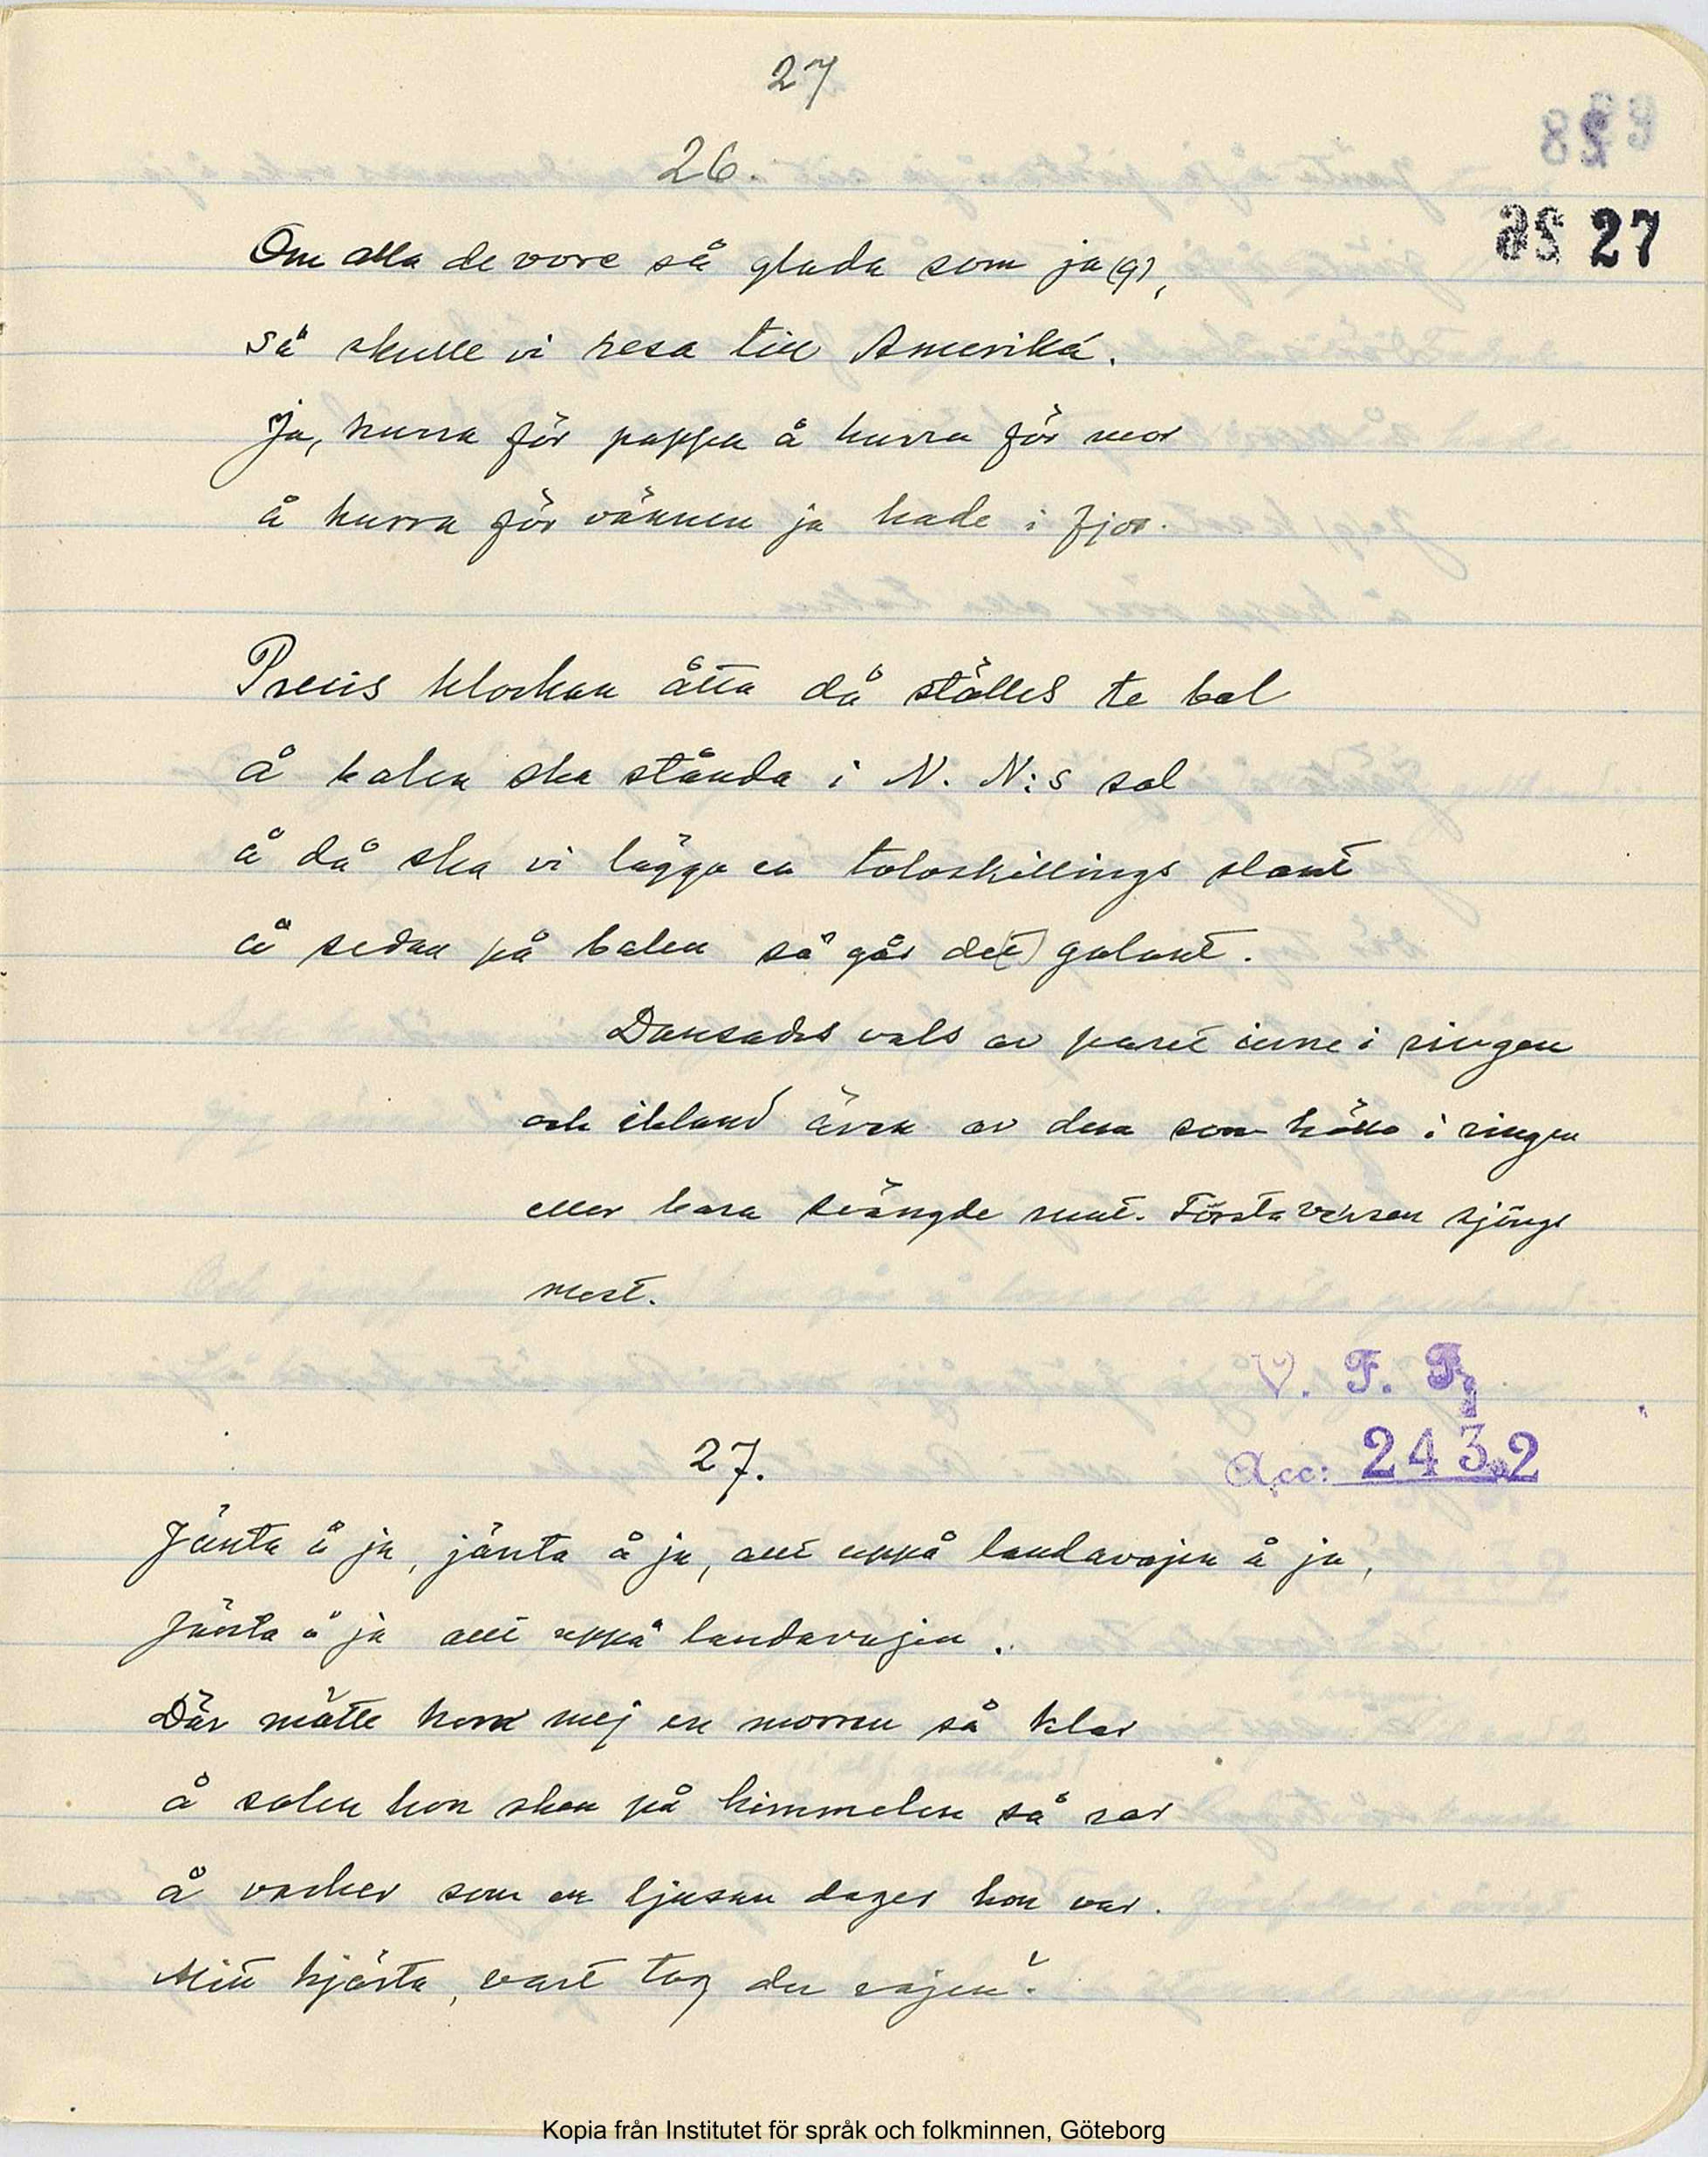 27
26.
27
Om alla de vore så glada som ja(g),
så skulle vi resa till Amerika.
Ja, hurra för pappa å hurra för mor
å hurra för vännen ja hade i fjor.
Precis klockan åtta då ställes te bal
å balen ska stånda i N. N:s sal
å då ska vi lägga en tolvskillings slant
å sedan på balen så går de(t) galant.
Dansades vals av paret inne i ringen
och ibland även av dem som höllo i ringen
eller bara svängde runt. Första versen sjöngs
mest.
V. F. F.
Acc: 2432
27.
Jänta å ja, jänta å ja, allt uppå landavajen å ja,
Jänta å ja allt uppå landavajen.
Där mötte hon mej en morron så klar
å solen hon sken på himmelen så rar
å vacker som en ljusan dager hon var.
Mitt hjärta, vart tog du vajen?
Kopia från Institutet för språk och folkminnen, Göteborg